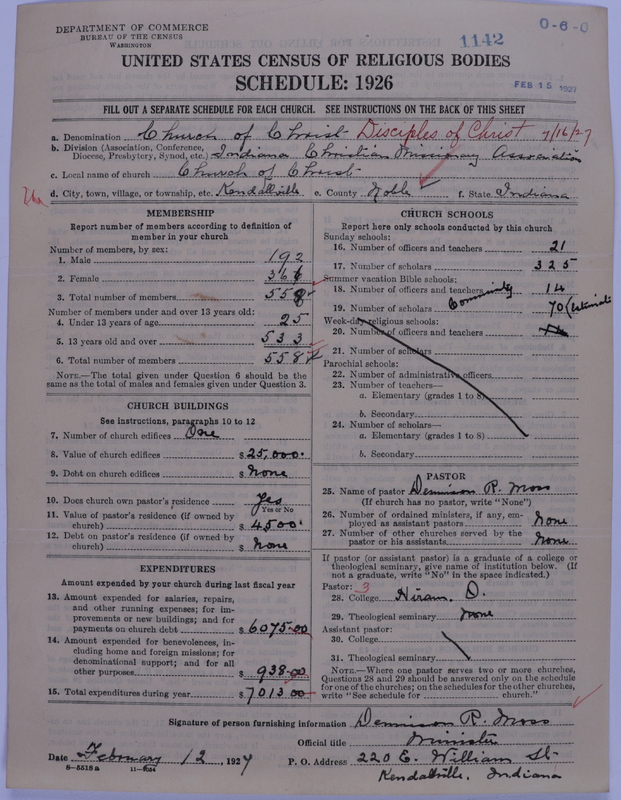 DEPARTMENT OF COMMERCE
BUREAU OF THE CENSUS
WASHINGTON
1142
0-6-0
UNITED STATES CENSUS OF RELIGIOUS BODIES
SCHEDULE: 1926
FEB 15 1927
FILL OUT A SEPARATE SCHEDULE FOR EACH CHURCH. SEE INSTRUCTIONS ON THE BACK OF THIS SHEET
a. Denomination Church of Christ Disciples of Christ 7/16/27
b. Division (Association, Conference,
Diocese, Presbytery, Synod, etc.) Indiana Christian Missionary Association
c. Local name of church Church of Christ
d. City, town, village, or township, etc. Kendallville e. County Noble f. State Indiana
MEMBERSHIP
Report number of members according to definition of
member in your church
Number of members, by sex:
1. Male 192
2. Female 366
3. Total number of members 558
Number of members under and over 13 years old:
4. Under 13 years of age 25
5. 13 years old and over 533
6. Total number of members 558
NOTE.—The total given under Question 6 should be
the same as the total of males and females given under Question 3.
CHURCH BUILDINGS
See instructions, paragraphs 10 to 12
7. Number of church edifices One
8. Value of church edifices $25,000.
9. Debt on church edifices $ None
10. Does church own pastor's residence Yes
Yes or No
11. Value of pastor's residence (if owned by
church) $4500.
12. Debt on pastor's residence (if owned by
church) $ None
EXPENDITURES
Amount expended by your church during last fiscal year
13. Amount expended for salaries, repairs,
and other running expenses; for im-
provements or new buildings; and for
payments on church debt $6075.00
14. Amount expended for benevolences, in-
cluding home and foreign missions; for
denominational support; and for all
other purposes $938.00
15. Total expenditures during year $7013.00
CHURCH SCHOOLS
Report here only schools conducted by this church
Sunday schools:
16. Number of officers and teachers 21
17. Number of scholars 325
Summer vacation Bible schools:
18. Number of officers and teachers 14
Community
19. Number of scholars 70 (Estimate
Week-day religious schools:
20. Number of officers and teachers
21. Number of scholars
Parochial schools:
22. Number of administrative officers
23. Number of teachers—
a. Elementary (grades 1 to 8)
b. Secondary
24. Number of scholars—
a. Elementary (grades 1 to 8)
b. Secondary
PASTOR
25. Name of pastor Dennison R. Moss
(If church has no pastor, write "None")
26. Number of ordained ministers, if any, em-
ployed as assistant pastors None
27. Number of other churches served by the
pastor or his assistants None
If pastor (or assistant pastor) is a graduate of a college or
theological seminary, give name of institution below. (If
not a graduate, write "No" in the space indicated.)
Pastor: 3
28. College Hiram, O.
29. Theological seminary None
Assistant pastor:
30. College
31. Theological seminary
NOTE.—Where one pastor serves two or more churches,
Questions 28 and 29 should be answered only on the schedule
for one of the churches; on the schedules for the other churches,
write "See schedule for church."
Signature of person furnishing information Dennison R. Moss
Official title Minister
Date February 12, 1927 P. O. Address 220 E. William St.
8-5518a 11-9054
Kendallville, Indiana